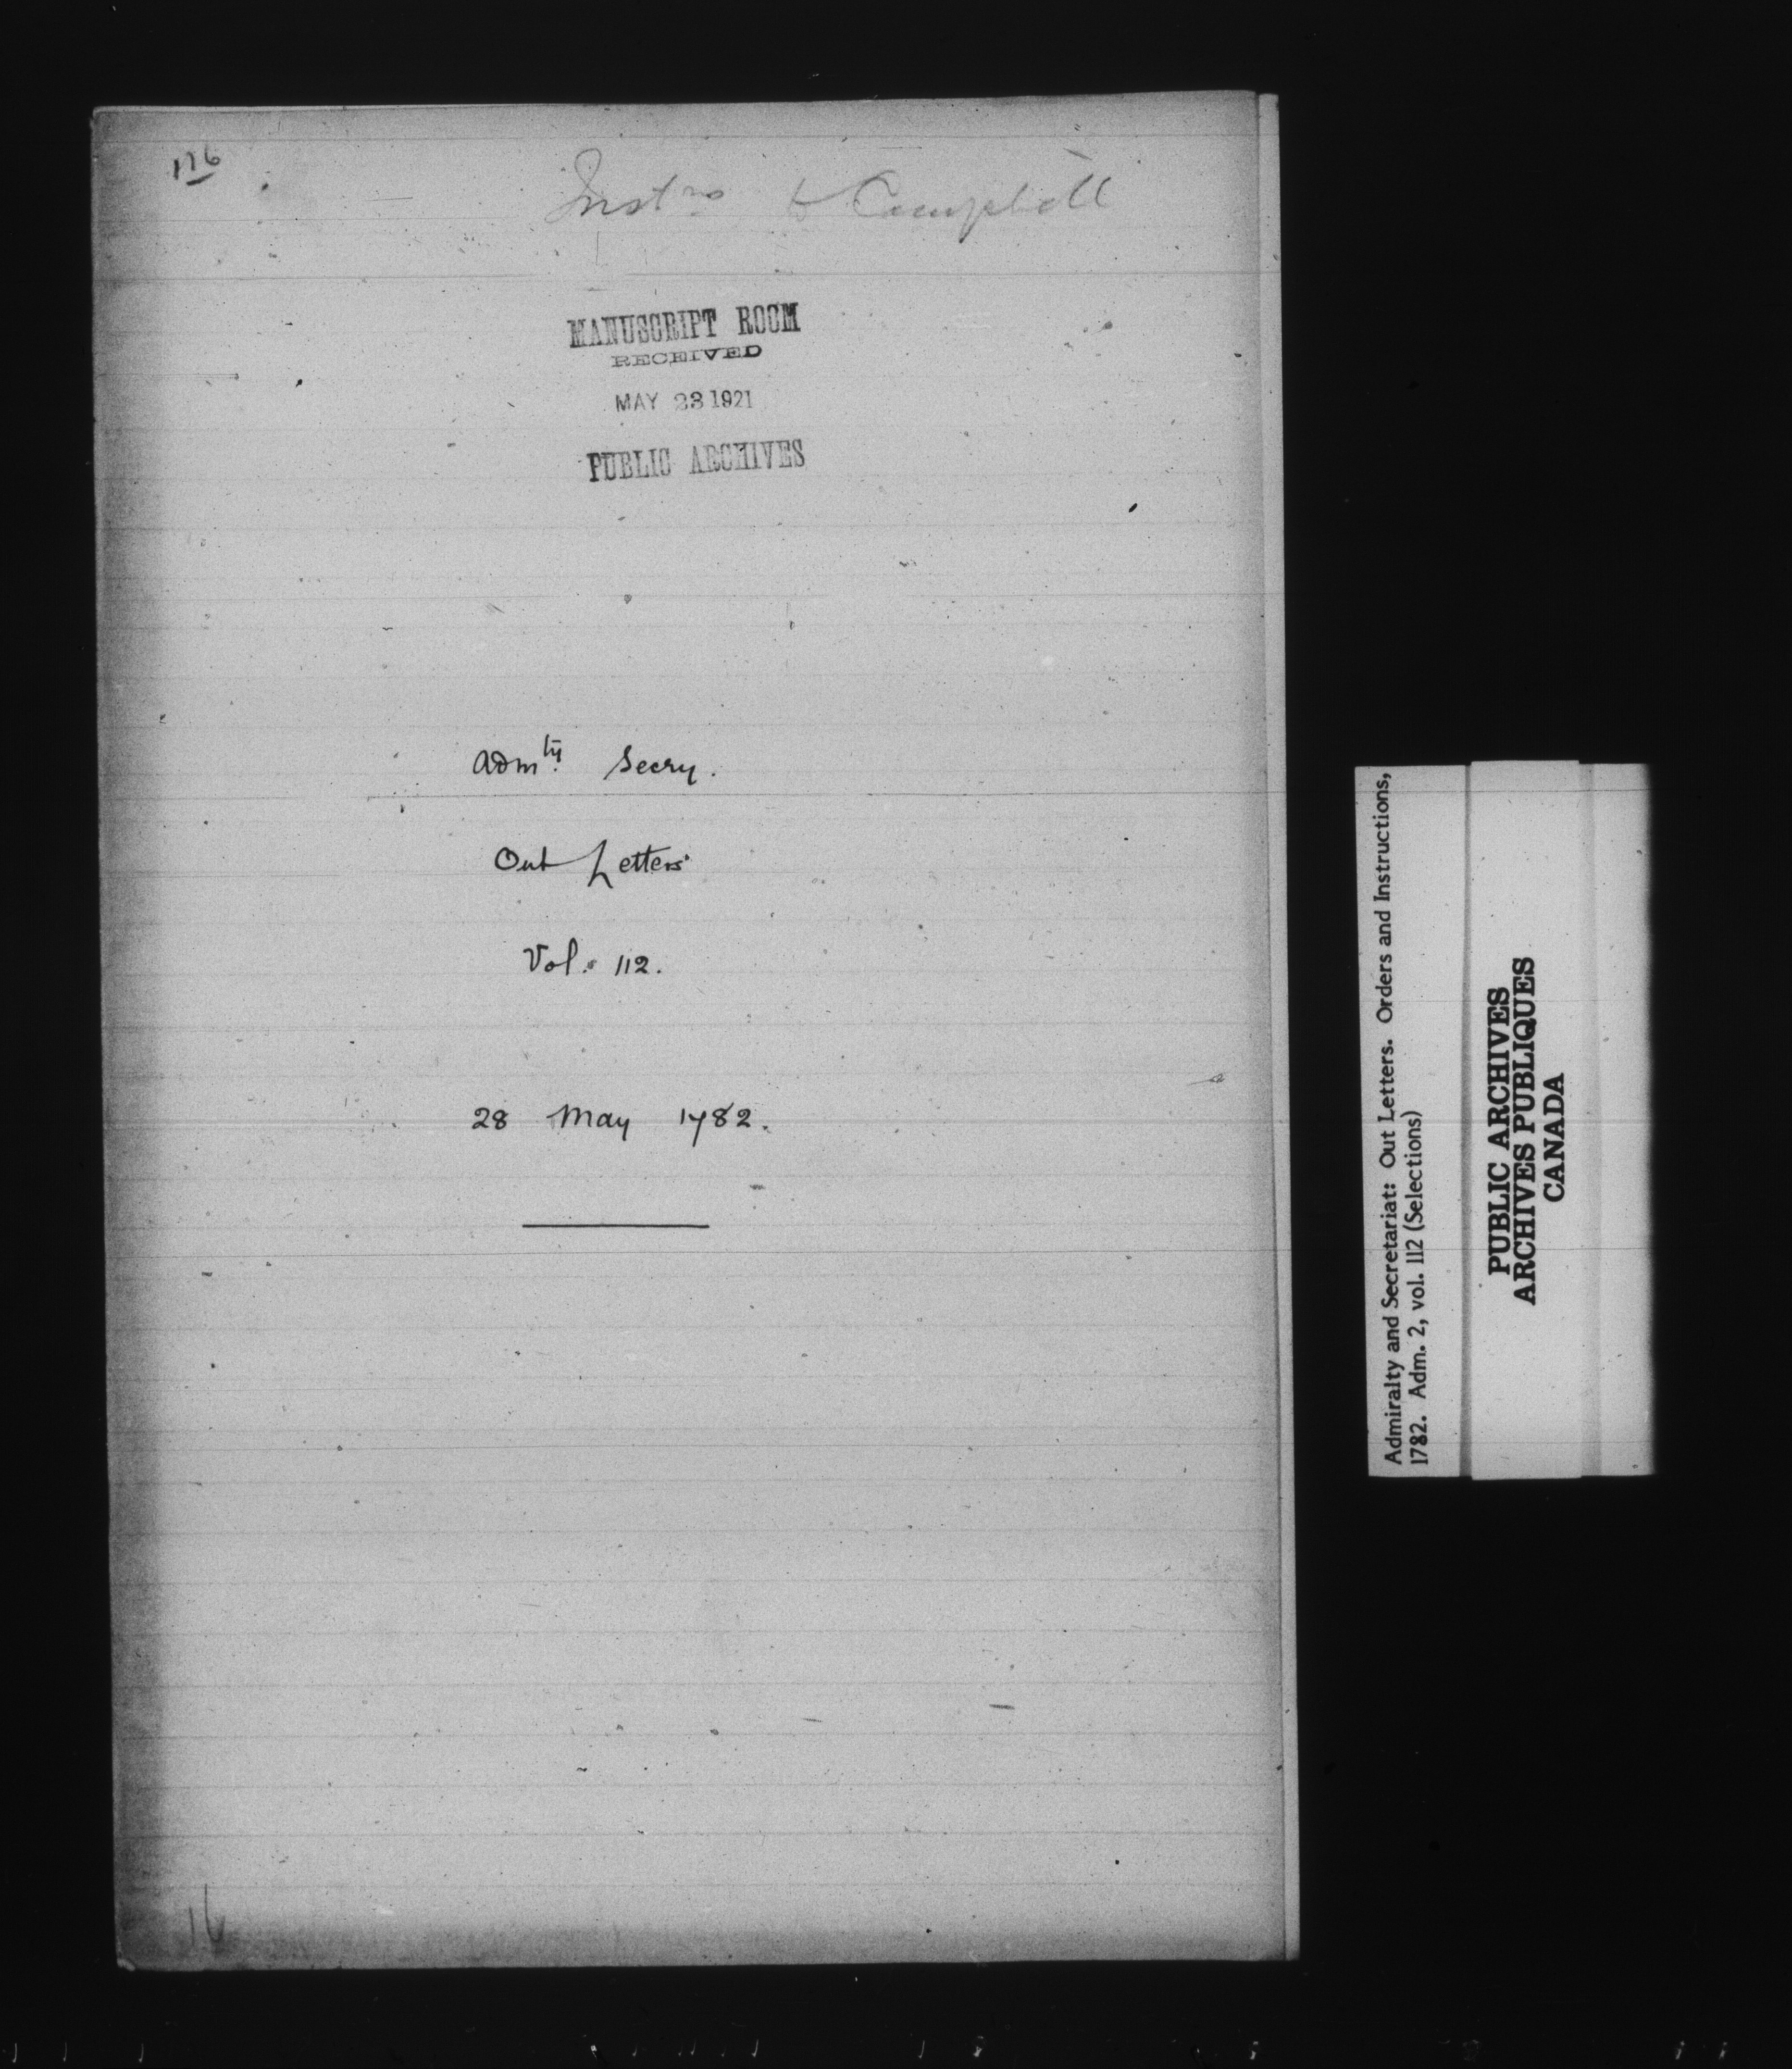 176
Instns to Campbell
MANUSCRIPT ROOM
RECEIVED
MAY 23 1921
PUBLIC ARCHIVES
Admty. Secry.
Out Letters
Vol. 112.
28 May 1782.
16
Admiralty and Secretariat: Out Letters. Orders and Instructions,
1782. Adm. 2, vol. 112 (Selections)
PUBLIC ARCHIVES
ARCHIVES PUBLIQUES
CANADA